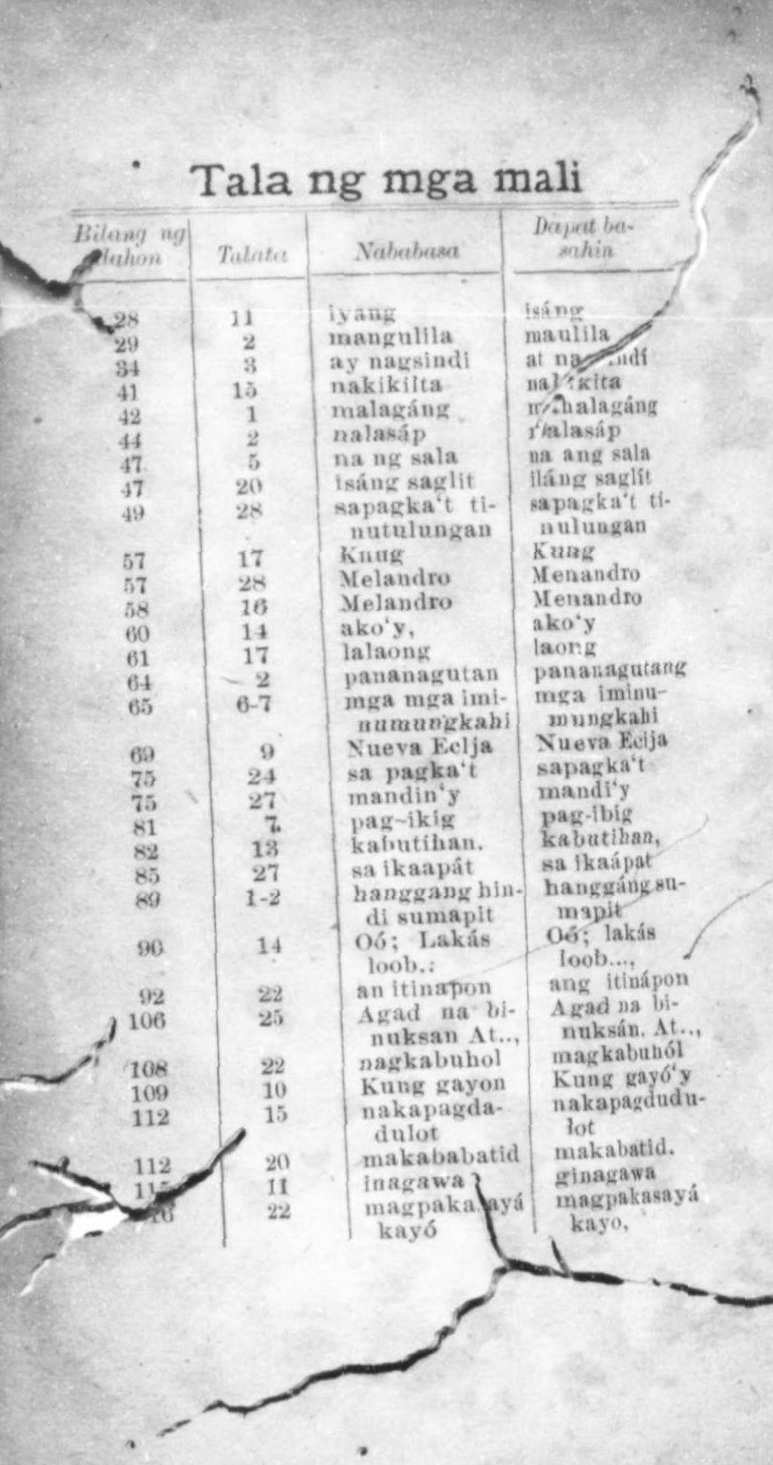 Tala ng mga mali
Bilang ng dahon Talata Nababasa Dapat ba-
sahin
28 11 iyang isáng
29 2 mangulila maulila
34 3 ay nagsindi at
41 15 nakikiita
42 1 malagáng
44 2 nalasáp
47 5 na ng sala na ang sala
47 20 isáng saglit iláng saglít
49 28 sapagka‘t ti- sapagka‘t ti-
nutulungan nulungan
57 17 Knug Kung
57 28 Melandro Menandro
58 16 Melandro Menandro
60 14 ako‘y, ako‘y
61 17 lalaong laong
64 2 pananagutan pananagutang
65 6-7 mga mga imi- mga iminu-
numungkahi mungkahi
69 9 Nueva Eclja Nueva Ecija
75 24 sa pagka‘t sapagka‘t
75 27 mandin‘y mandi‘y
81 7. pag-ikig pag-ibig
82 13 kabutihan. kabutihan,
85 27 sa ikaapát sa ikaápat
89 1-2 hanggang hin- hanggáng su-
di sumapit mapit
90 14 Oó; Lakás Oó; lakás
loob.: loob...,
92 22 an itinapon ang itinápon
106 25 Agad na bi- Agad na bi-
nuksan At.., nuksán. At..,
108 22 nagkabuhol magkabuhól
109 10 Kung gayon Kung gayó‘y
112 15 nakapagda- nakapagdudu-
dulot lot
112 20 makababatid makabatid.
11 inagawa ginagawa
22 magpakasayá magpakasayá
kayó kayo,